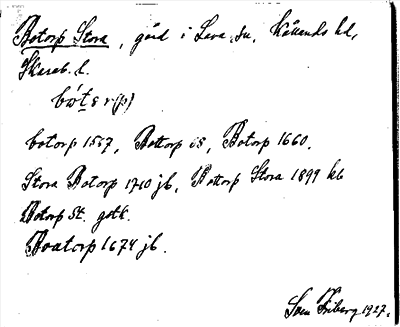 Botorp Stora, gård i Lava sn, Kållands hd,
Skarab. l.
botorp 1557, Bottorp ib, Botorp 1660.
Stora Botorp 1710 jb, Bottorp Stora 1899 kb
Botorp St. gotk.
Boatorp 1674 jb.
Sven Friberg 1927.